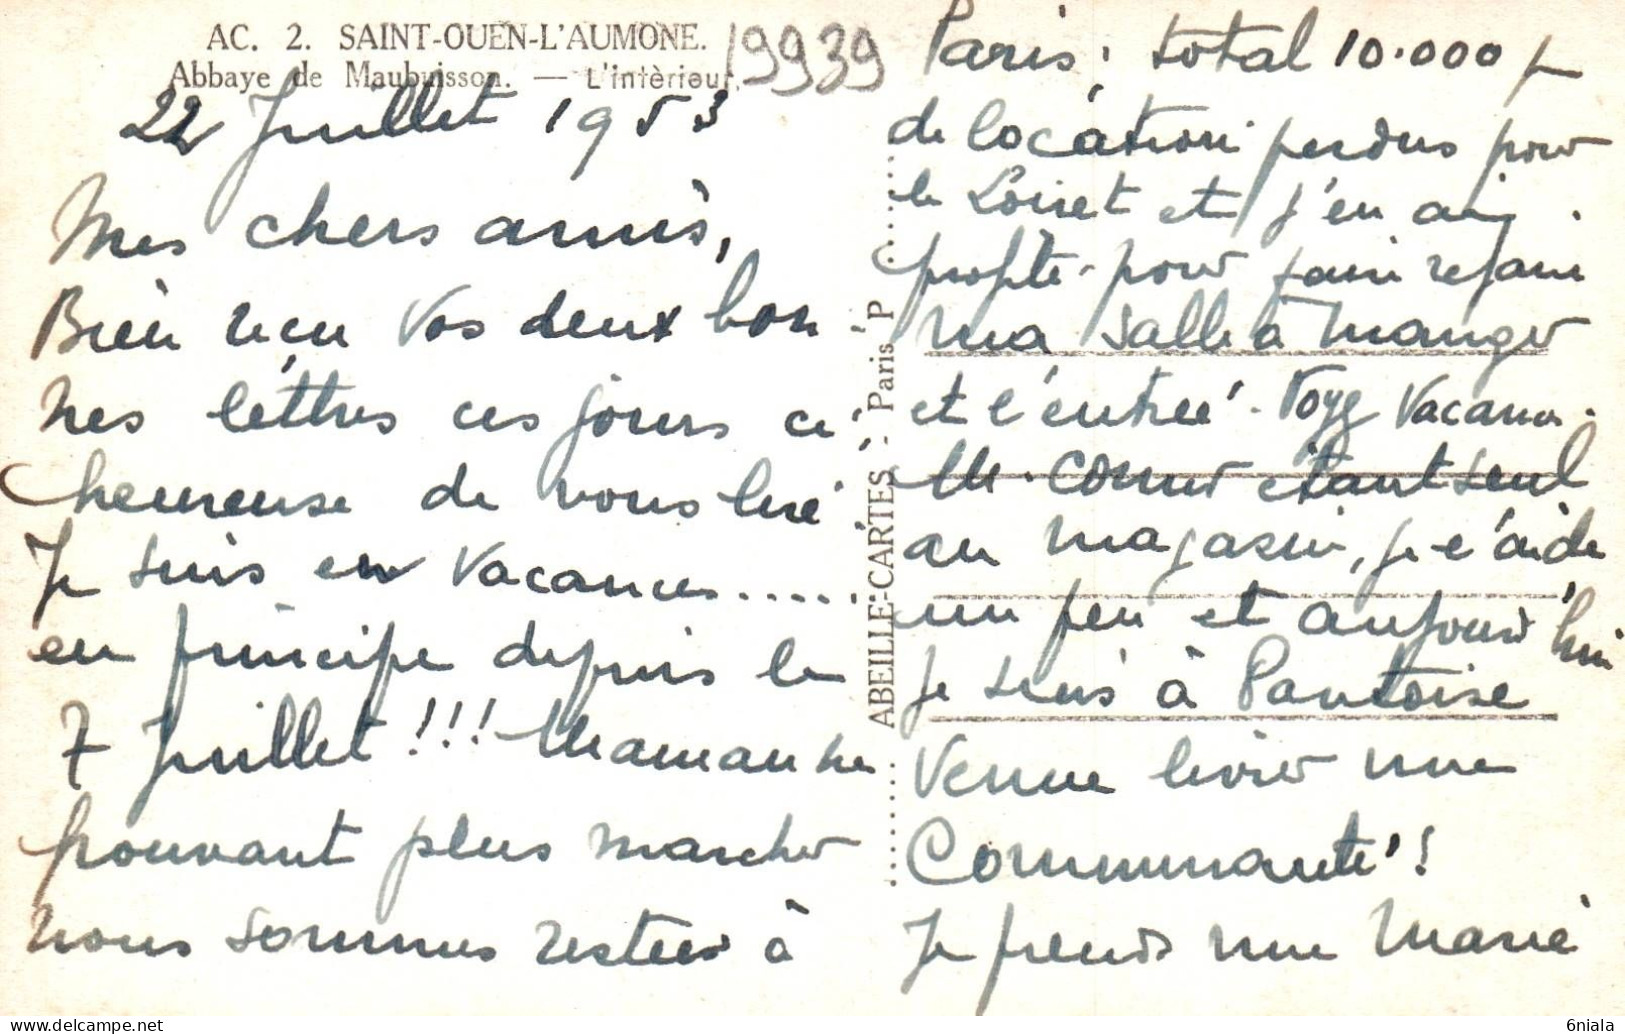 AC. 2. SAINT-OUEN-L'AUMONE.
Abbaye de Maubuisson. — L'intèrieur.
19939
22 Juillet 1953
Mes chers amis,
Bien reçu vos deux bon
nes lettres ces jours ci
heureuse de vous lire
Je suis en vacances.....
en principe depuis le
7 Juillet !!! Maman ne
pouvant plus marcher
nous sommes restées à
ABEILLE-CARTES - Paris P
Paris : total 10.000 f
de location perdus pour
le Loiret et j'en ai
profité pour faire refaire
ma salle à manger
et l'entrée. Voyez vacances.
M. étant seul
au magasin, je l'aide
un peu et aujourd'hui
je suis à Pontoise
venue livrer une
Communauté !
Je prends une
delcampe.net
6niala